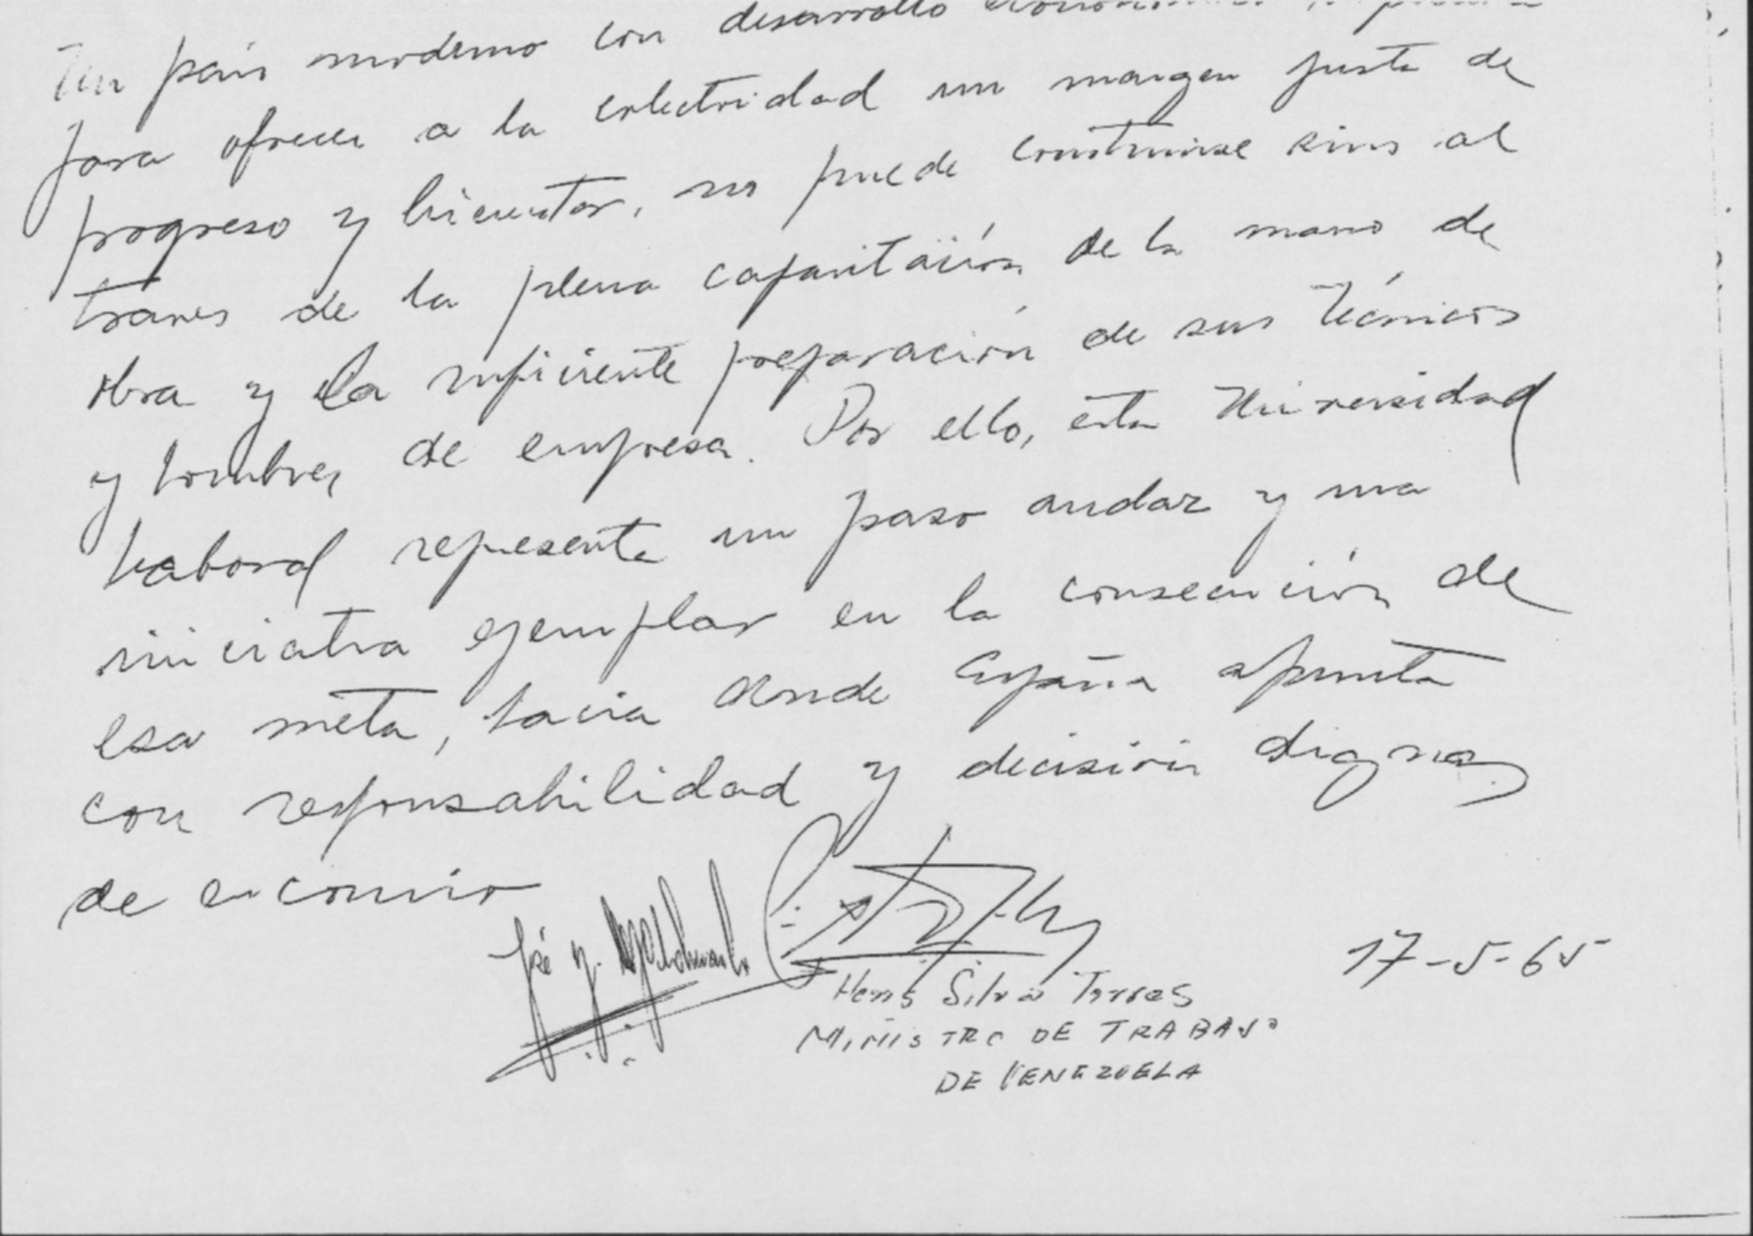 Un país moderno con desarrollo
para ofrecer a la colectividad un margen justo de
progreso y bienestar, no puede construirse sino al
traves de la plena capacitación de la mano de
obra y la suficiente preparación de sus técnicos
y hombres de empresa. Por ello, esta Universidad
Laboral representa un paso andar y una
iniciativa ejemplar en la consecución de
esa meta, hacia donde España apunta
con responsabilidad y decisión dignas
de encomio
José
Hens Silva Torres
17-5-65
MINISTRO DE TRABAJO
DE VENEZUELA